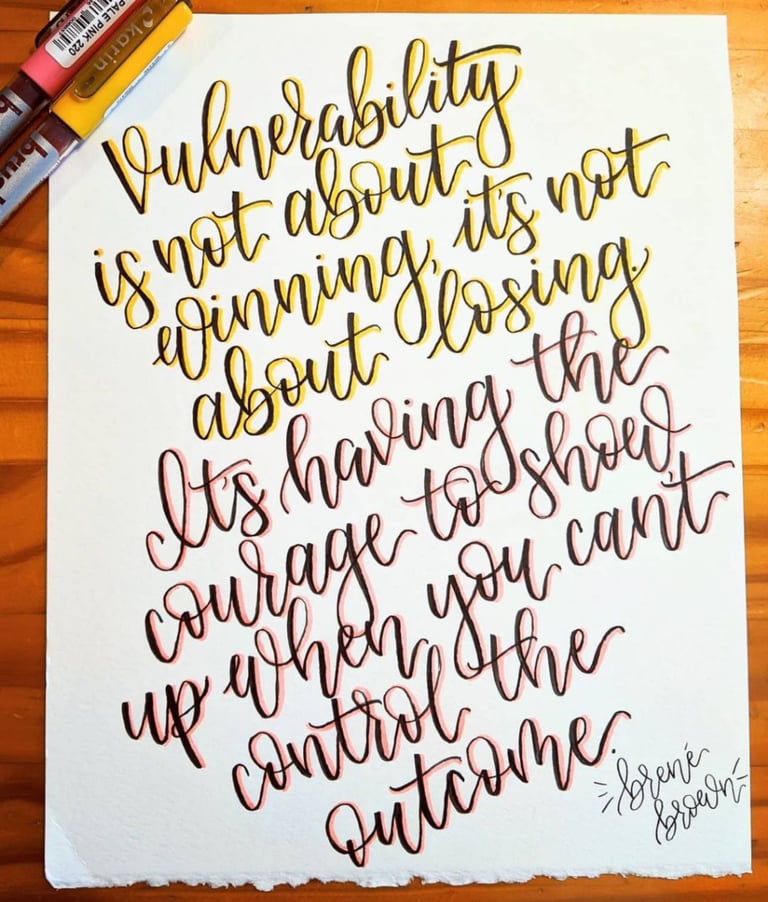 PALE PINK 220
karin
brush
Vulnerability
is not about
winning, it's not
about losing.
It's having the
courage to show
up when you can't
control the
outcome.
brené
brown